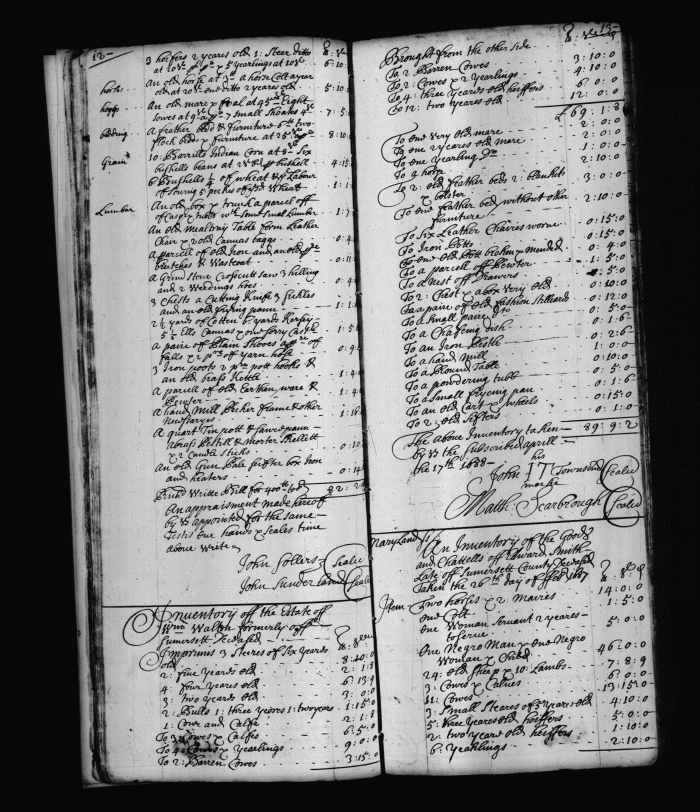 12
3 heifers 2 yeares old 1: Steer ditto
at 20s p ps x 5 yearlings at 10s 6:10
horse An old horse at 3 a horse Colt a year
old at 20s one ditto 2 yeares old 5:10
An old mare x foal at 45s Eight
sowes at 9s a ps 7 small Shoates 4s 7:5
beding A feather bed & Furniture 6 two
flock beds x furniture at 25s ps 8:10
Grain 10: Barrills Indian Corn at 8s Six
bushells beans at p bushell 4:15
6 Bushells ½ of wheat & Labour
of Sowing 5 peckes of Wheat 1:1
Lumber An old box x trunk a parcell off
Caske x tubbs wth Some Small Lumber 1:7
An old Mealtray Table form Leather
Chair x 2 old Canvas baggs 0:4
A parcell of old Iron and an old pr
britches & Wastcoat 0:11
A Grindstone Crosscutt saw 3 hilling
and 2 Weedings hoes 0:4
3 Chests a Cutting Knife 3 Sickles
and an old frying pann 1:1
2½ yards of Cotten 6 yards Kersey
5½ Ells Canvas x one Ivory Case 1:5
A paire of Plain Shooes a pr of
falls x 2 prs off yarn hose 0:9
3 Iron poots 2 prs pott hooks &
an old brass Kettle 1:4
A parcell of old Earthen ware &
Pewter 1:4
A hand Mill Pecker frame & other
Necessaryes 1:16
A quart Tin pott & Saucepann
brass Pestill & Morter Skellett
x 2 Candle sticks 0:10
An old Gun Bale box Iron
and heaters 0:14
Writt Bill for 400 82:2
An appraisment made hereof
by us appointed for the same
Testis our hands x Seales time
above Written
John Sollers Seale
John Sunderland Seale
Inventory off the Estate of
Wm Walton formerly off
Summersett Deceased
Imprimis 3 Steeres of Six yeares
old 8:10:0
2: five years old 2:1:8
4: four yeares old 6:13:4
3: two yeares old 3:0:0
2: Bulls 1: three yeares 1: two yeares 1:15:0
1: Cow and Calfe 2:1:8
To 3 Cowes x Calfes 6:5:0
To 4 Cowes x yearlings 9:0:0
To 2: Barren Cowes 3:15:0
13
Brought from the other side
To 2 Barren Cowes 3:10:0
To 2: Cowes x 2 yearlings 4:10:0
To 4: three yeares old heiffers 6:0:0
To 12: two yeares old 12:0:0
£69:1:8
To one very old mare 2:0:0
To one 2 yeares old mare 2:0:0
To one yearling Do 1:0:0
To a horse 2:10:0
To 2: old feather beds 2: blankets
x bolster 3:0:0
To one feather bed without other
furniture 2:10:0
To Six Leather Chaires worne 0:15:0
To Iron Potts 0:15:0
To one old Pott broken x mended 0:4:0
To a parcell off Pewter 1:5:0
To a Nest off Drawers 5:0
To 2: Chest x a box very Old 0:10:0
To a paire of Old fashion Stilliards 0:12:0
To a Small paire Do 0:5:0
To a Chafeing dish 0:1:6
To an Iron Pestle 0:2:6
To a hand Mill 1:0:0
To a Round Table 0:10:0
To a powdering tubb 0:5:0
To a Small frying pan 0:1:6
To an Old Cart x wheels 0:15:0
To 2: Old Sifters 0:1:0
The above Inventory taken 89:9:2
by us the Subscribed aprill
the 17th 1688
his
John IT Townsend Seale
marke
Matth: Scarbrough Seale
Maryland Ss
An Inventory off the Goods
and Chattells off Edward Smith
Late off Sumersett County Deceased
Taken the 26th day of Feb 1687
Item Two horses x 2: Mares 14:0:0
one Colt 1:5:0
one Woman Servant 2 yeares
to serve 5:0:0
One Negro Man x One Negro
Woman x Child 46:0:0
24: old Sheep x 10: Lambs 7:8:9
3: Cowes x Calves 6:0:0
11: Cowes 13:15:0
3: Small Steeres of 3 yeares old 4:10:0
5: three yeares old heiffers 5:0:0
2: two yeare old heiffers 1:10:0
6: Yearlings 2:10:0